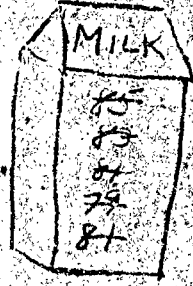 MILK
85
83
84
79
84